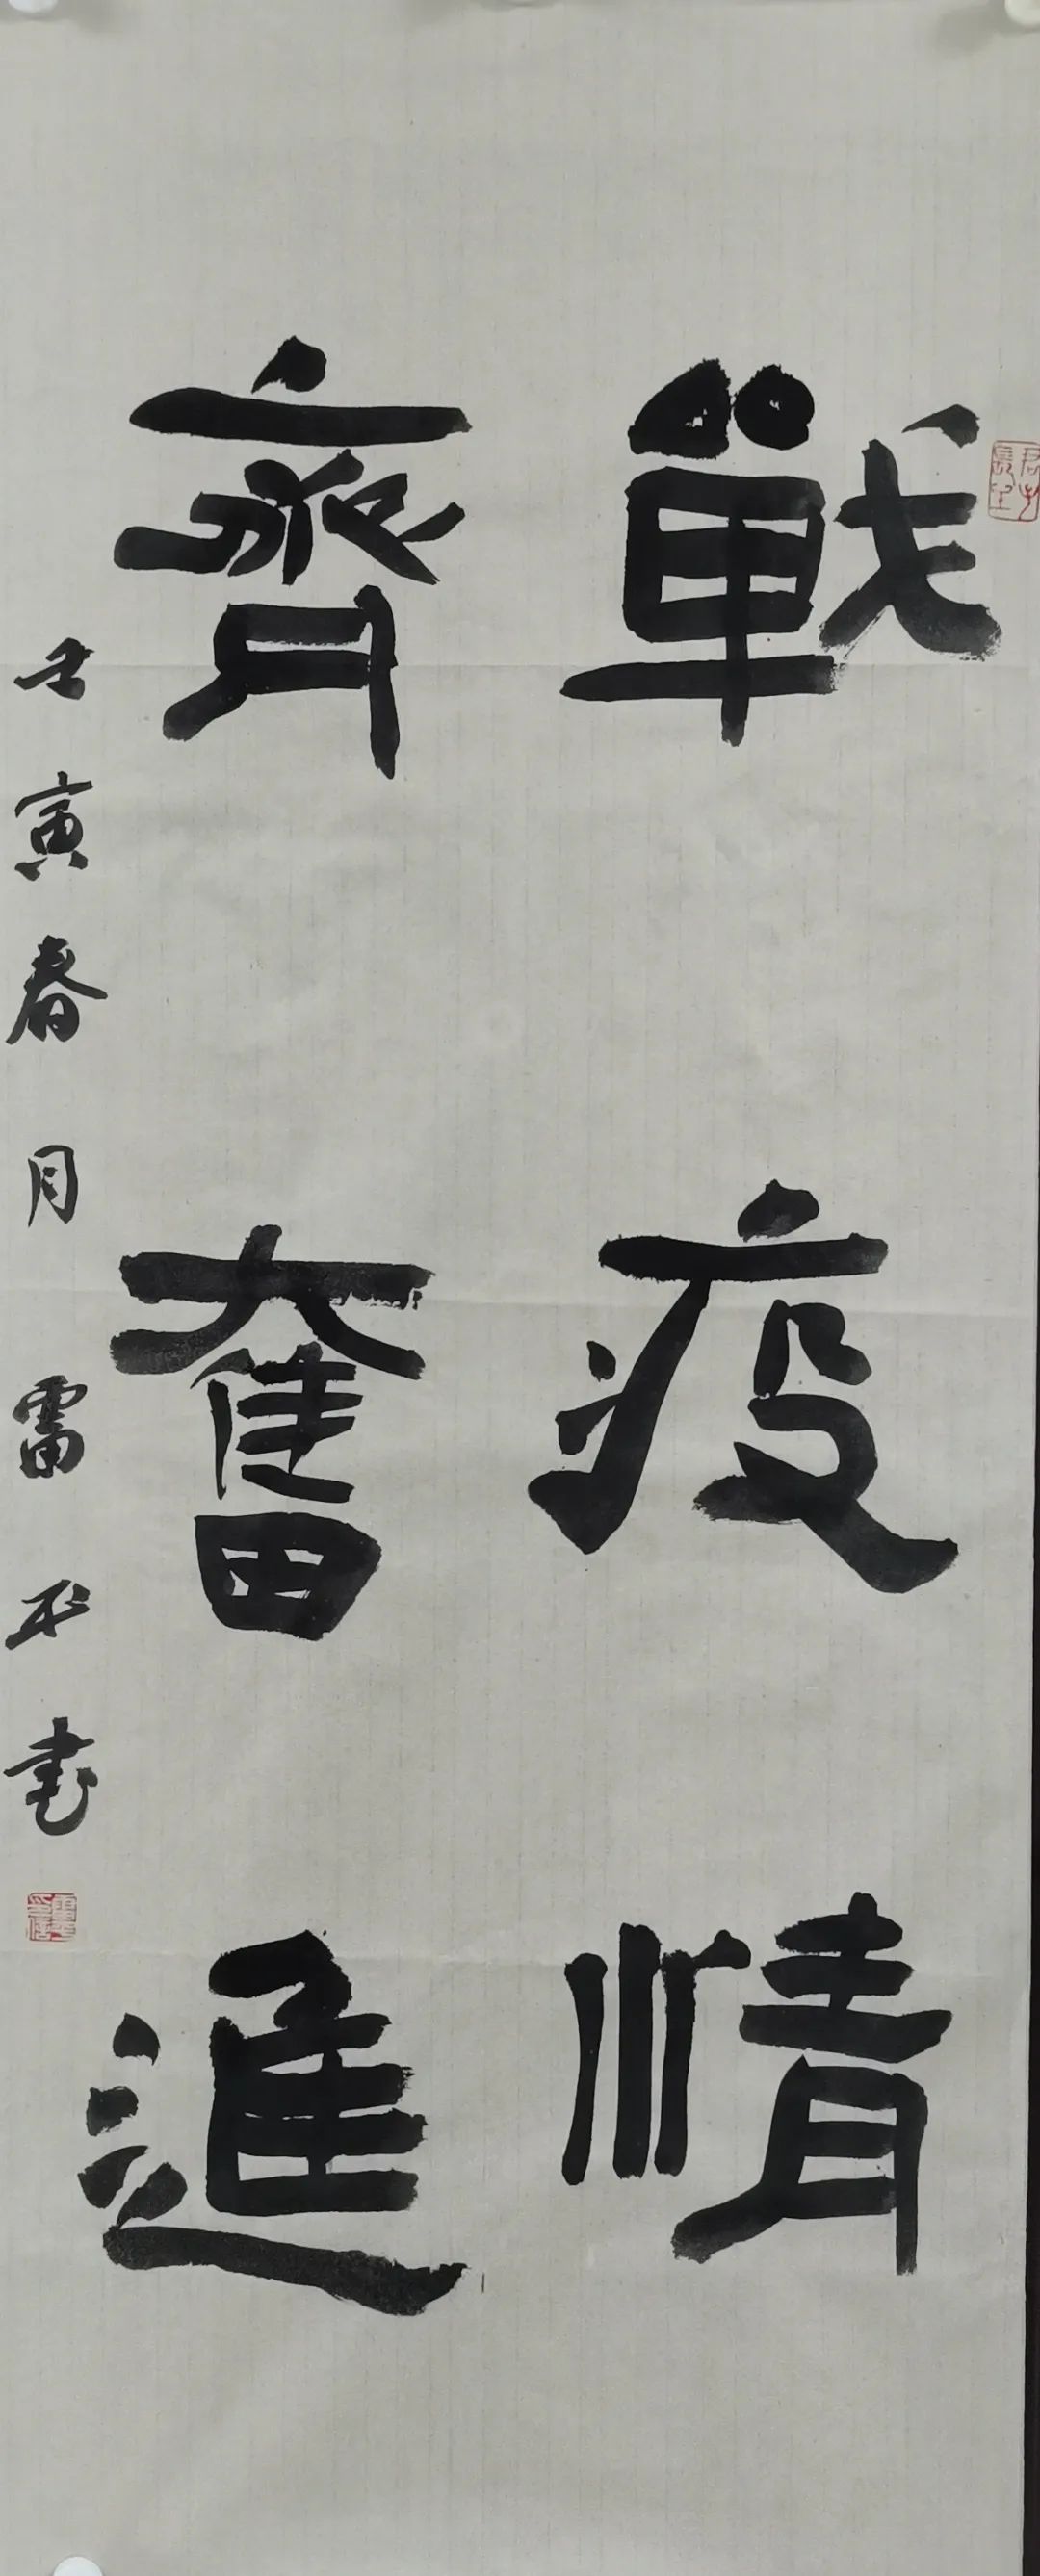 戰疫情
齊奮進
壬寅春月雷平書